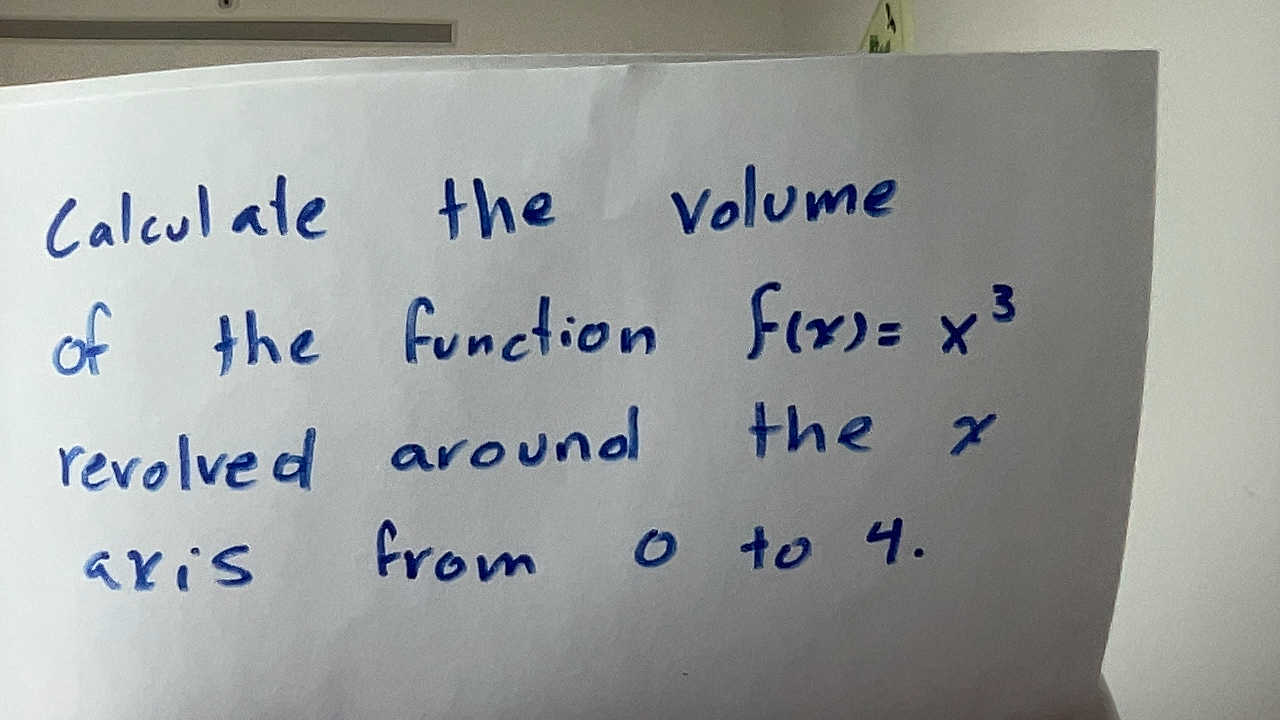 Calculate the volume
of the function f(x) = x³
revolved around the x
axis from 0 to 4.